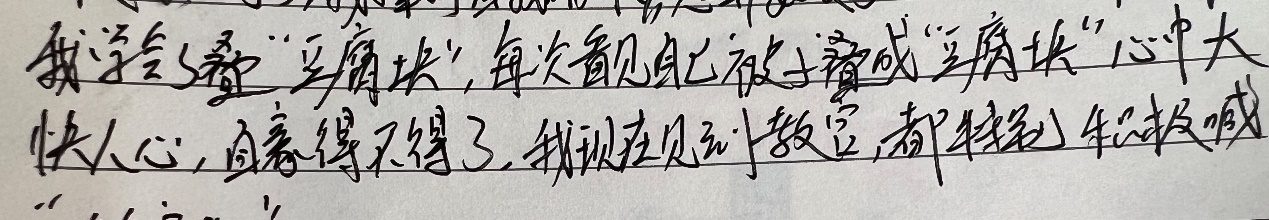 我学会了叠“豆腐块”,每次看见自己被子叠成“豆腐块”心中大
快人心,直喜得不得了.我现在见到教官,都特别积极喊